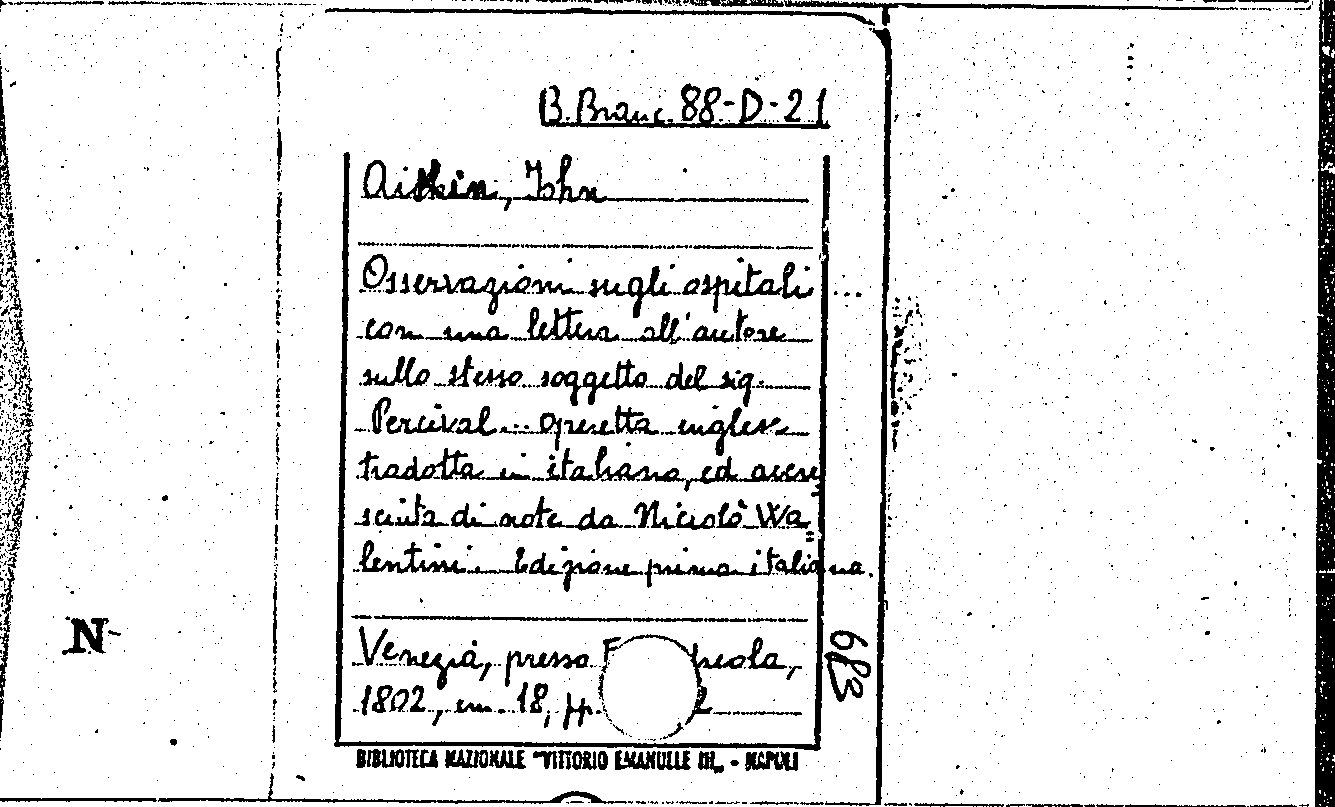 B. Branc. 88-D-21
Aitkin, John
Osservazioni sugli ospitali ...
con una lettera all'autore
sullo stesso soggetto del sig.
Percival ... operetta inglese
tradotta in italiano, ed accre
sciuta di note da Niccolò Wa
lentini. Edizione prima italiana.
N
Venezia, presso
1802, cm. 18, pp.
683
BIBLIOTECA NAZIONALE "VITTORIO EMANUELE III" - NAPOLI